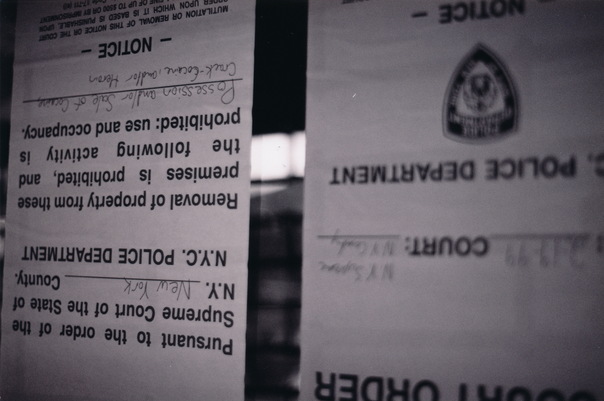 COURT ORDER
N.Y. Supreme
COURT: N.Y. County
C. POLICE DEPARTMENT
- NOTICE -
Pursuant to the order of the
Supreme Court of the State of
N.Y. New York County.
N.Y.C. POLICE DEPARTMENT
Removal of property from these
premises is prohibited, and
the following activity is
prohibited: use and occupancy,
Possession and/or Sale of Cocaine
Crack-Cocaine, and/or Heroin
- NOTICE -
MUTILATION OR REMOVAL OF THIS NOTICE OR THE COURT
ORDER UPON WHICH IT IS BASED IS PUNISHABLE, UPON
FINE OF UP TO $500 OR IMPRISONMENT